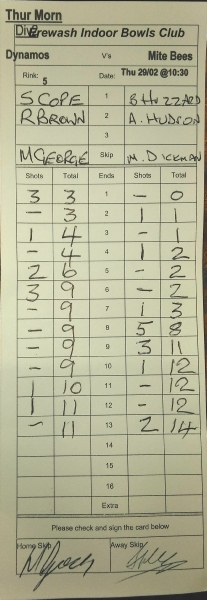 Thur Morn
Div Erewash Indoor Bowls Club
Dynamos V's Mite Bees
Rink: 5 Date: Thu 29/02 @10:30
S COPE 1 B HUZZARD
R BROWN 2 A. HUDSON
3
M GEORGE Skip M. DICKMAN
Shots Total Ends Shots Total
3 3 1 - 0
- 3 2 1 1
1 4 3 - 1
- 4 4 1 2
2 6 5 - 2
3 9 6 - 2
- 9 7 1 3
- 9 8 5 8
- 9 9 3 11
- 9 10 1 12
1 10 11 - 12
1 11 12 - 12
- 11 13 2 14
14
15
16
Extra
Please check and sign the card below
Home Skip Away Skip